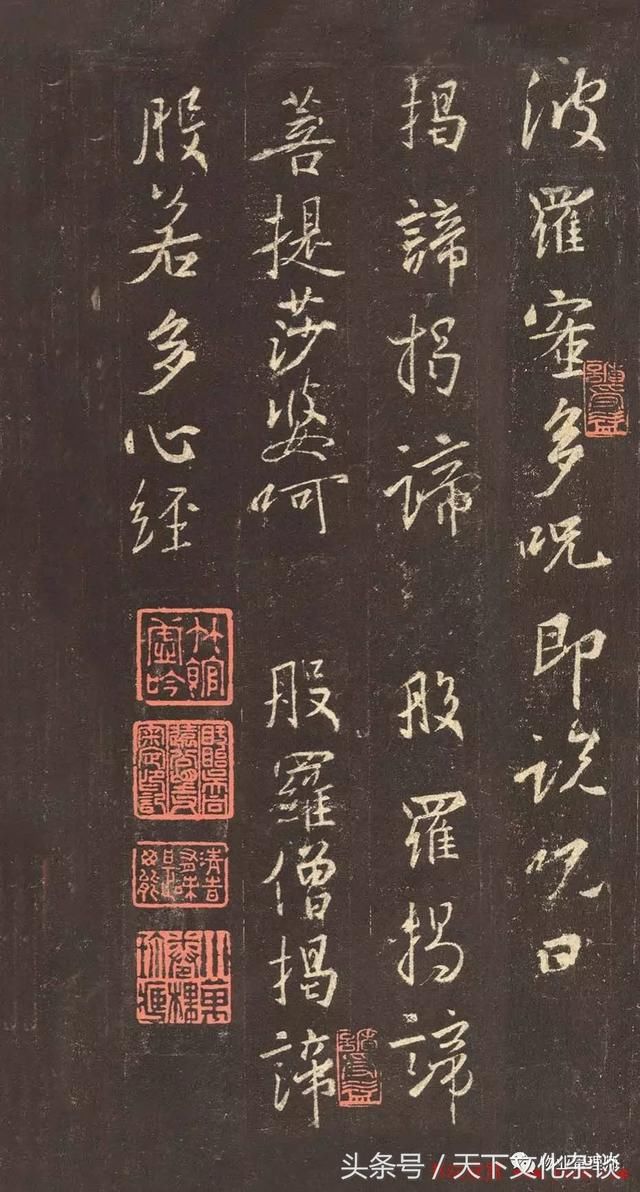 波羅蜜多呪即說呪曰
揭諦揭諦 般羅揭諦
菩提莎婆呵 般羅僧揭諦
般若多心經
竹館虛吟
头条号 / 天下文化杂谈